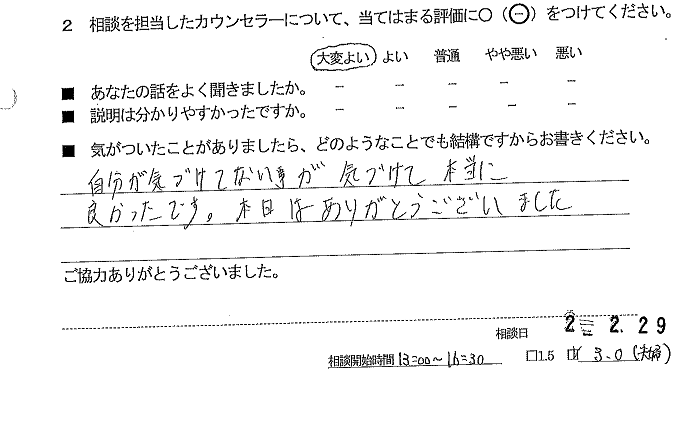 2 相談を担当したカウンセラーについて、当てはまる評価に○(⊖)をつけてください。
大変よい よい 普通 やや悪い 悪い
■ あなたの話をよく聞きましたか。 − − − − −
■ 説明は分かりやすかったですか。 − − − − −
■ 気がついたことがありましたら、どのようなことでも結構ですからお書きください。
自分が気づけてない事が 気づけて 本当に
良かったです。本日はありがとうございました
ご協力ありがとうございました。
相談日 2 2. 29
相談開始時間 13:00〜16:30 □1.5 3.0 (夫婦)